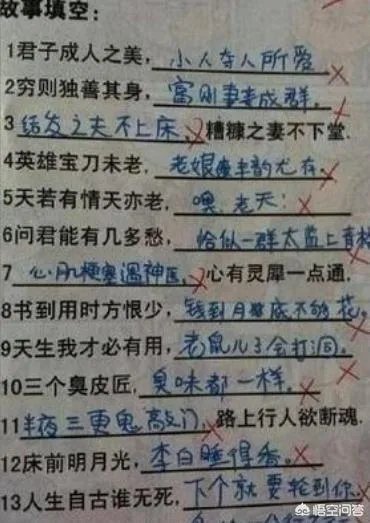 故事填空:
1君子成人之美,小人夺人所爱
2穷则独善其身,富则妻妾成群。
3结发之夫不上床,糟糠之妻不下堂.
4英雄宝刀未老,老娘丰韵尤存.
5天若有情天亦老,噢,老天!
6问君能有几多愁,恰似一群太监上青楼
7心肌梗塞遇神医,心有灵犀一点通.
8书到用时方恨少,钱到月底不够花。
9天生我才必有用,老鼠儿子会打洞。
10三个臭皮匠,臭味都一样。
11半夜三更鬼敲门,路上行人欲断魂.
12床前明月光,李白睡得香。
13人生自古谁无死,下个就要轮到你.
悟空问答